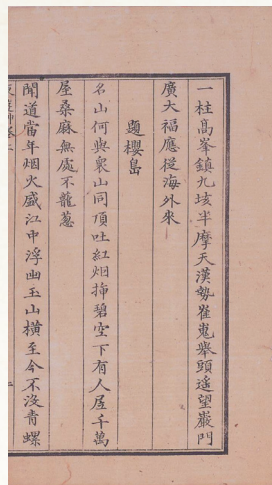 一柱高峯鎮九垓半摩天漢勢崔嵬舉頭遙望巖門
廣大福應從海外來
題櫻島
名山何與衆山同頂吐紅烟揷碧空下有人居千萬
屋桑麻無處不蘢蔥
聞道當年烟火盛江中浮幽玉山橫至今不沒青螺